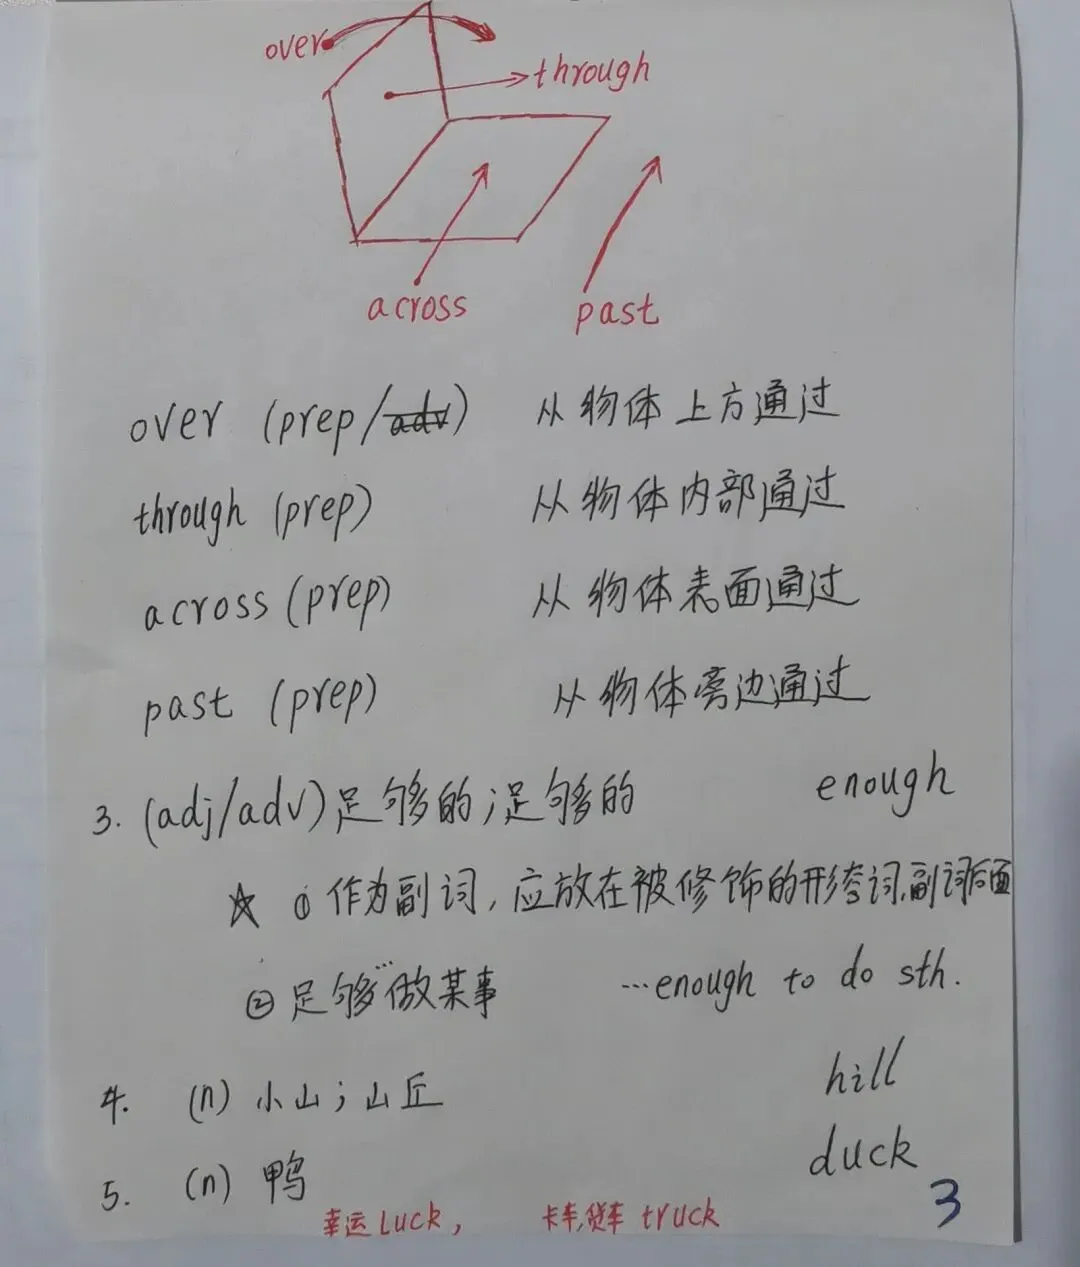 over
through
across
past
over (prep/adv) 从物体上方通过
through (prep) 从物体内部通过
across (prep) 从物体表面通过
past (prep) 从物体旁边通过
3. (adj/adv) 足够的；足够的 enough
☆ ① 作为副词，应放在被修饰的形容词、副词后面
② 足够…做某事 …enough to do sth.
4. (n) 小山；山丘 hill
5. (n) 鸭 duck
幸运 luck， 卡车，货车 truck
3